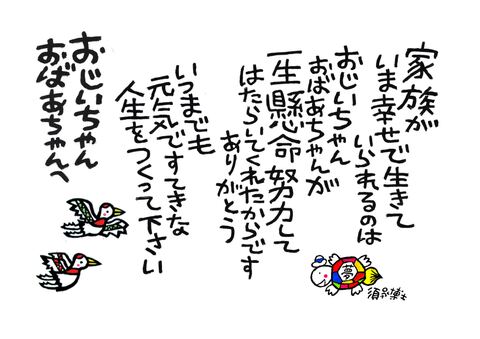 家族が
いま幸せで生きて
いられるのは
おじいちゃん
おばあちゃんが
一生懸命努力して
はたらいてくれたからです
ありがとう
いつまでも
元気ですてきな
人生をつくって下さい
おじいちゃん
おばあちゃんへ
夢